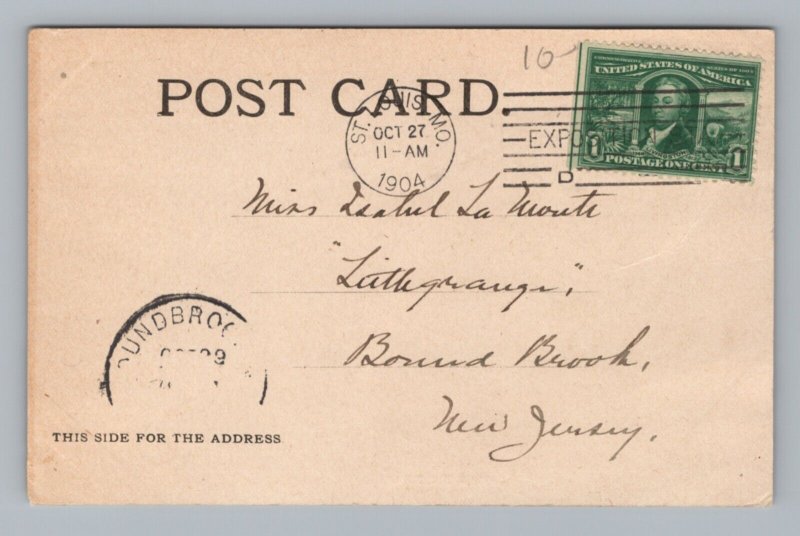 10
COMMEMORATIVE SERIES OF 1904
UNITED STATES OF AMERICA
POST CARD.
ST. LOUIS, MO.
OCT 27
11-AM
1904
EXPOSITION
D
1 POSTAGE ONE CENT 1
Miss Isabel La Monte
"Littlegrange",
Bound Brook,
New Jersey.
OUNDBROO
OCT 29
THIS SIDE FOR THE ADDRESS